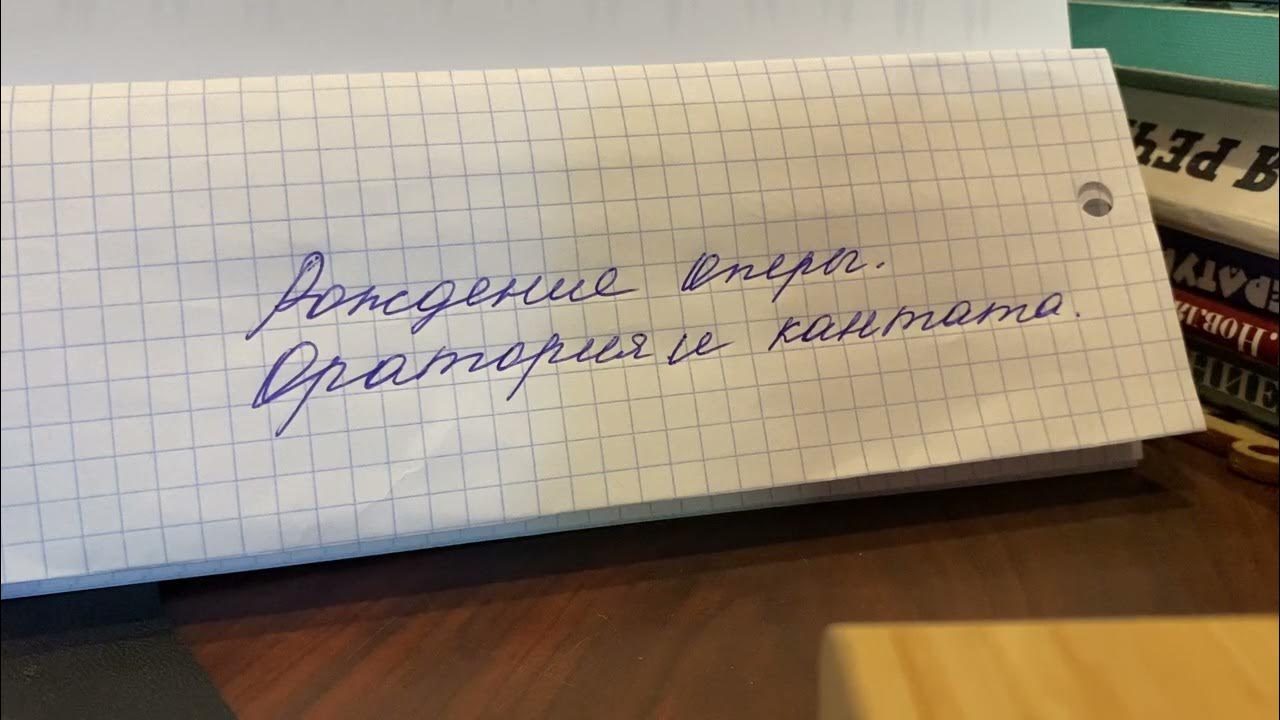 Рождение оперы.
Оратория и кантата.
Я РЕЧ
ЕРАТУ
.НОВЛ
НИЕ